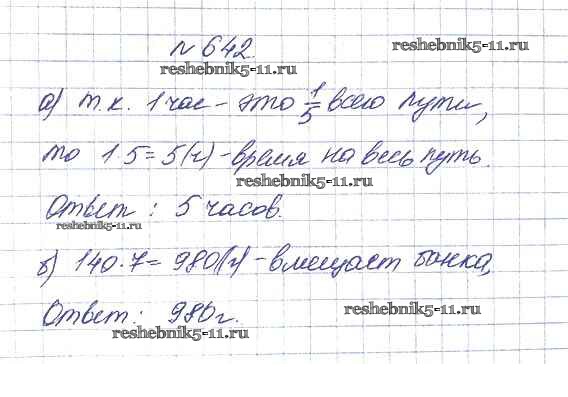 № 642.
reshebnik5-11.ru
reshebnik5-11.ru
а) т.к. 1 час - это 1/5 всего пути,
то 1·5=5(ч) - время на весь путь.
reshebnik5-11.ru
Ответ: 5 часов.
reshebnik5-11.ru
б) 140·7=980(г) - вмещает банка,
Ответ: 980г.
reshebnik5-11.ru
reshebnik5-11.ru